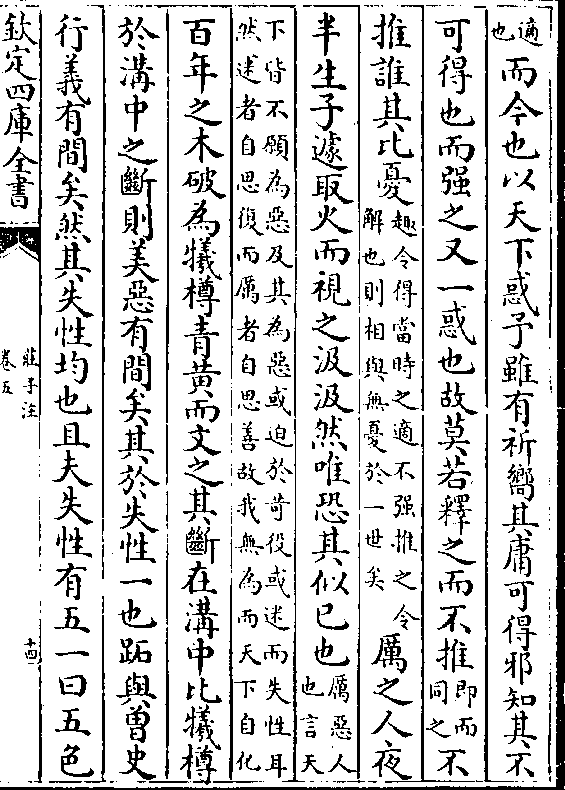 適也而今也以天下惑予雖有祈嚮其庸可得邪知其不
可得也而强之又一惑也故莫若釋之而不推即而同之不
推誰其比憂趣令得當時之適不强推之令解也則相與無憂於一世矣厲之人夜
半生子遽取火而視之汲汲然唯恐其似已也厲惡人也言天
下皆不願為惡及其為惡或迫於苛役或迷而失性耳然迷者自思復而厲者自思善故我無為而天下自化
百年之木破為犧樽青黄而文之其斷在溝中比犧樽
於溝中之斷則美惡有間矣其於失性一也跖與曾史
行義有間矣然其失性均也且夫失性有五一曰五色
欽定四庫全書
莊子注
卷五
十四